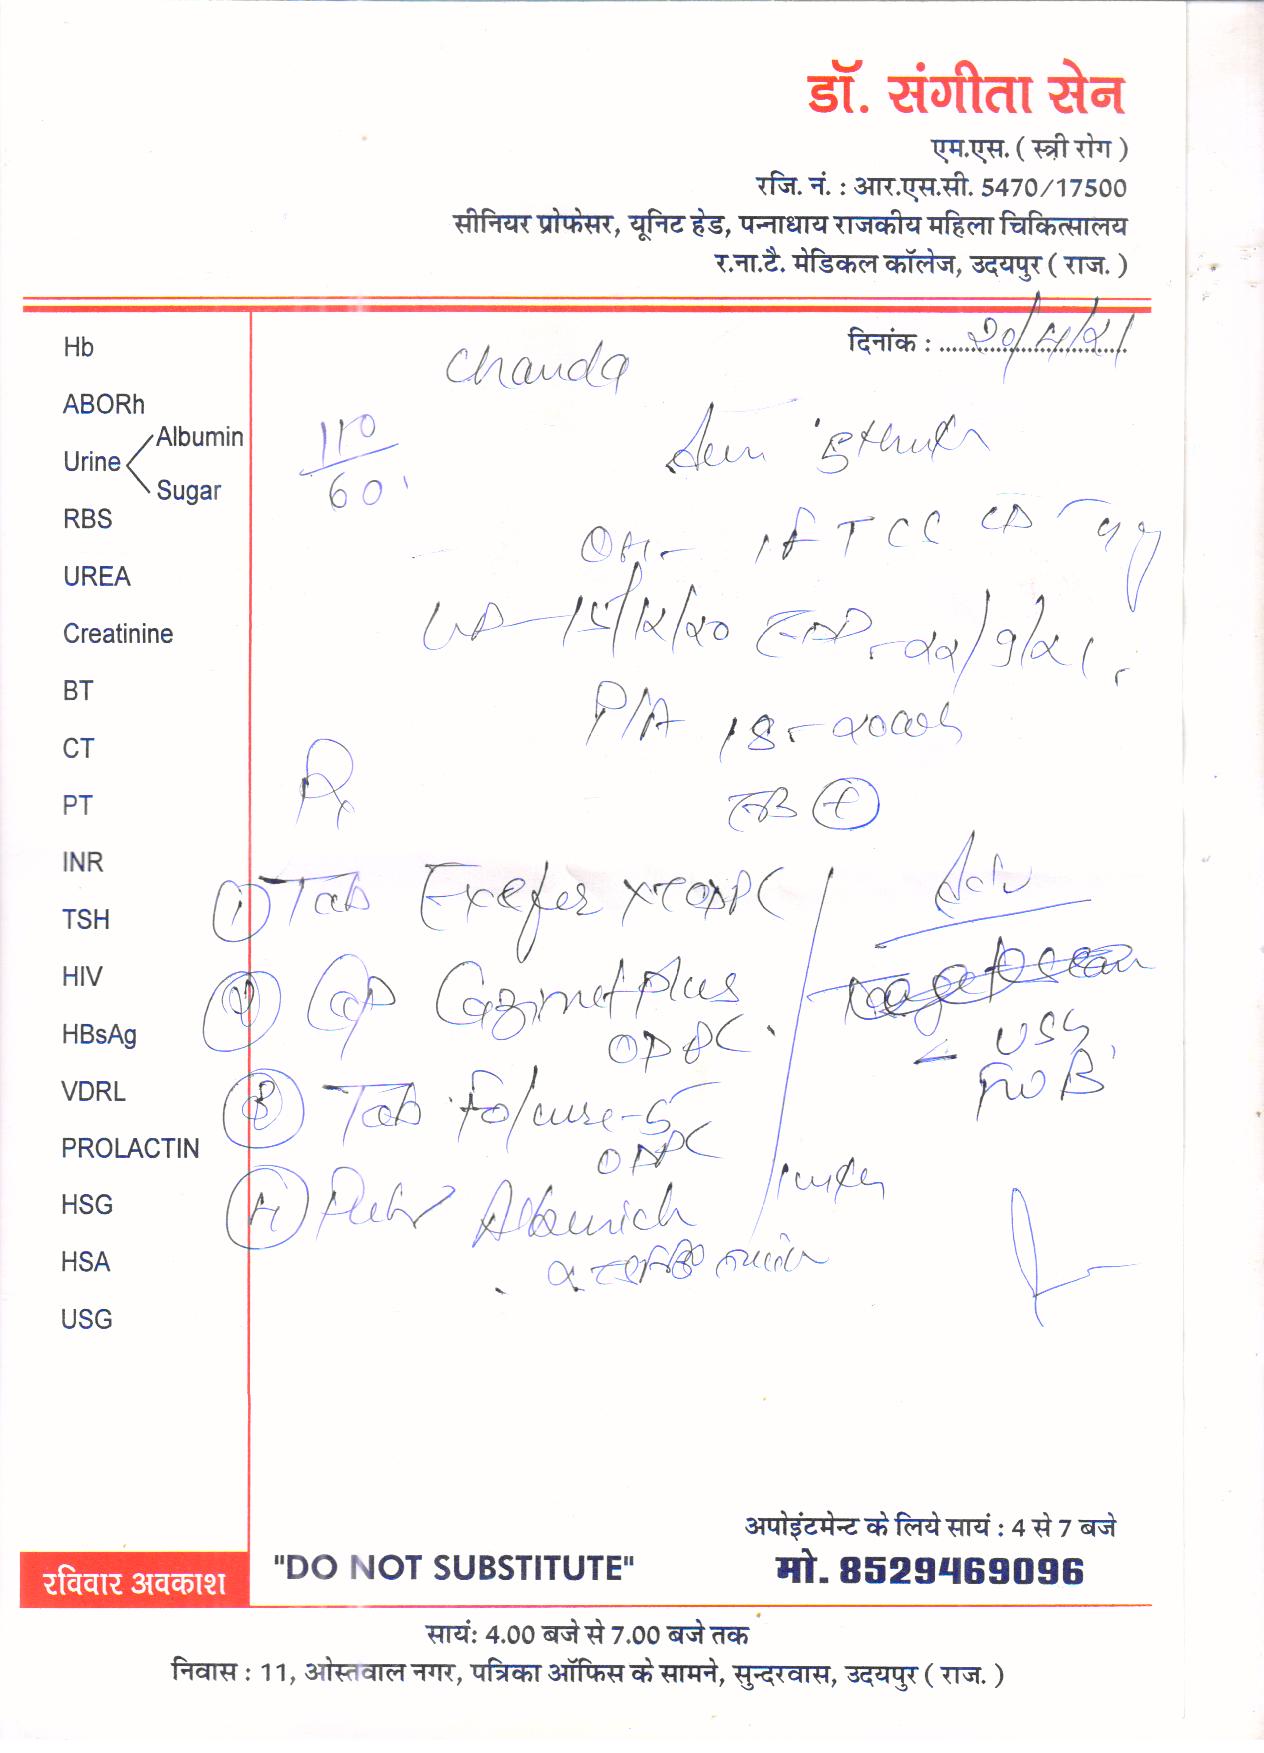 डॉ. संगीता सेन
एम.एस. ( स्त्री रोग )
रजि. नं. : आर.एस.सी. 5470/17500
सीनियर प्रोफेसर, यूनिट हेड, पन्नाधाय राजकीय महिला चिकित्सालय
र.ना.टै. मेडिकल कॉलेज, उदयपुर ( राज. )
दिनांक : 20/4/21
Chanda
110/60
OH - 1 FTCS
15/12/20 EDD - 22/9/21
P/A 18-20
FHS +
Rx
Adv
1) Tab Exefer XT OD PC
2) Cap Cozimet Plus
OD PC
Target Scan
- USG
FWB
3) Tab Folcure-5
OD PC
4) Albunich
Hb
ABORh
Urine
Albumin
Sugar
RBS
UREA
Creatinine
BT
CT
PT
INR
TSH
HIV
HBsAg
VDRL
PROLACTIN
HSG
HSA
USG
अपोइंटमेन्ट के लिये सायं : 4 से 7 बजे
मो. 8529469096
"DO NOT SUBSTITUTE"
रविवार अवकाश
सायं: 4.00 बजे से 7.00 बजे तक
निवास : 11, ओस्तवाल नगर, पत्रिका ऑफिस के सामने, सुन्दरवास, उदयपुर ( राज. )